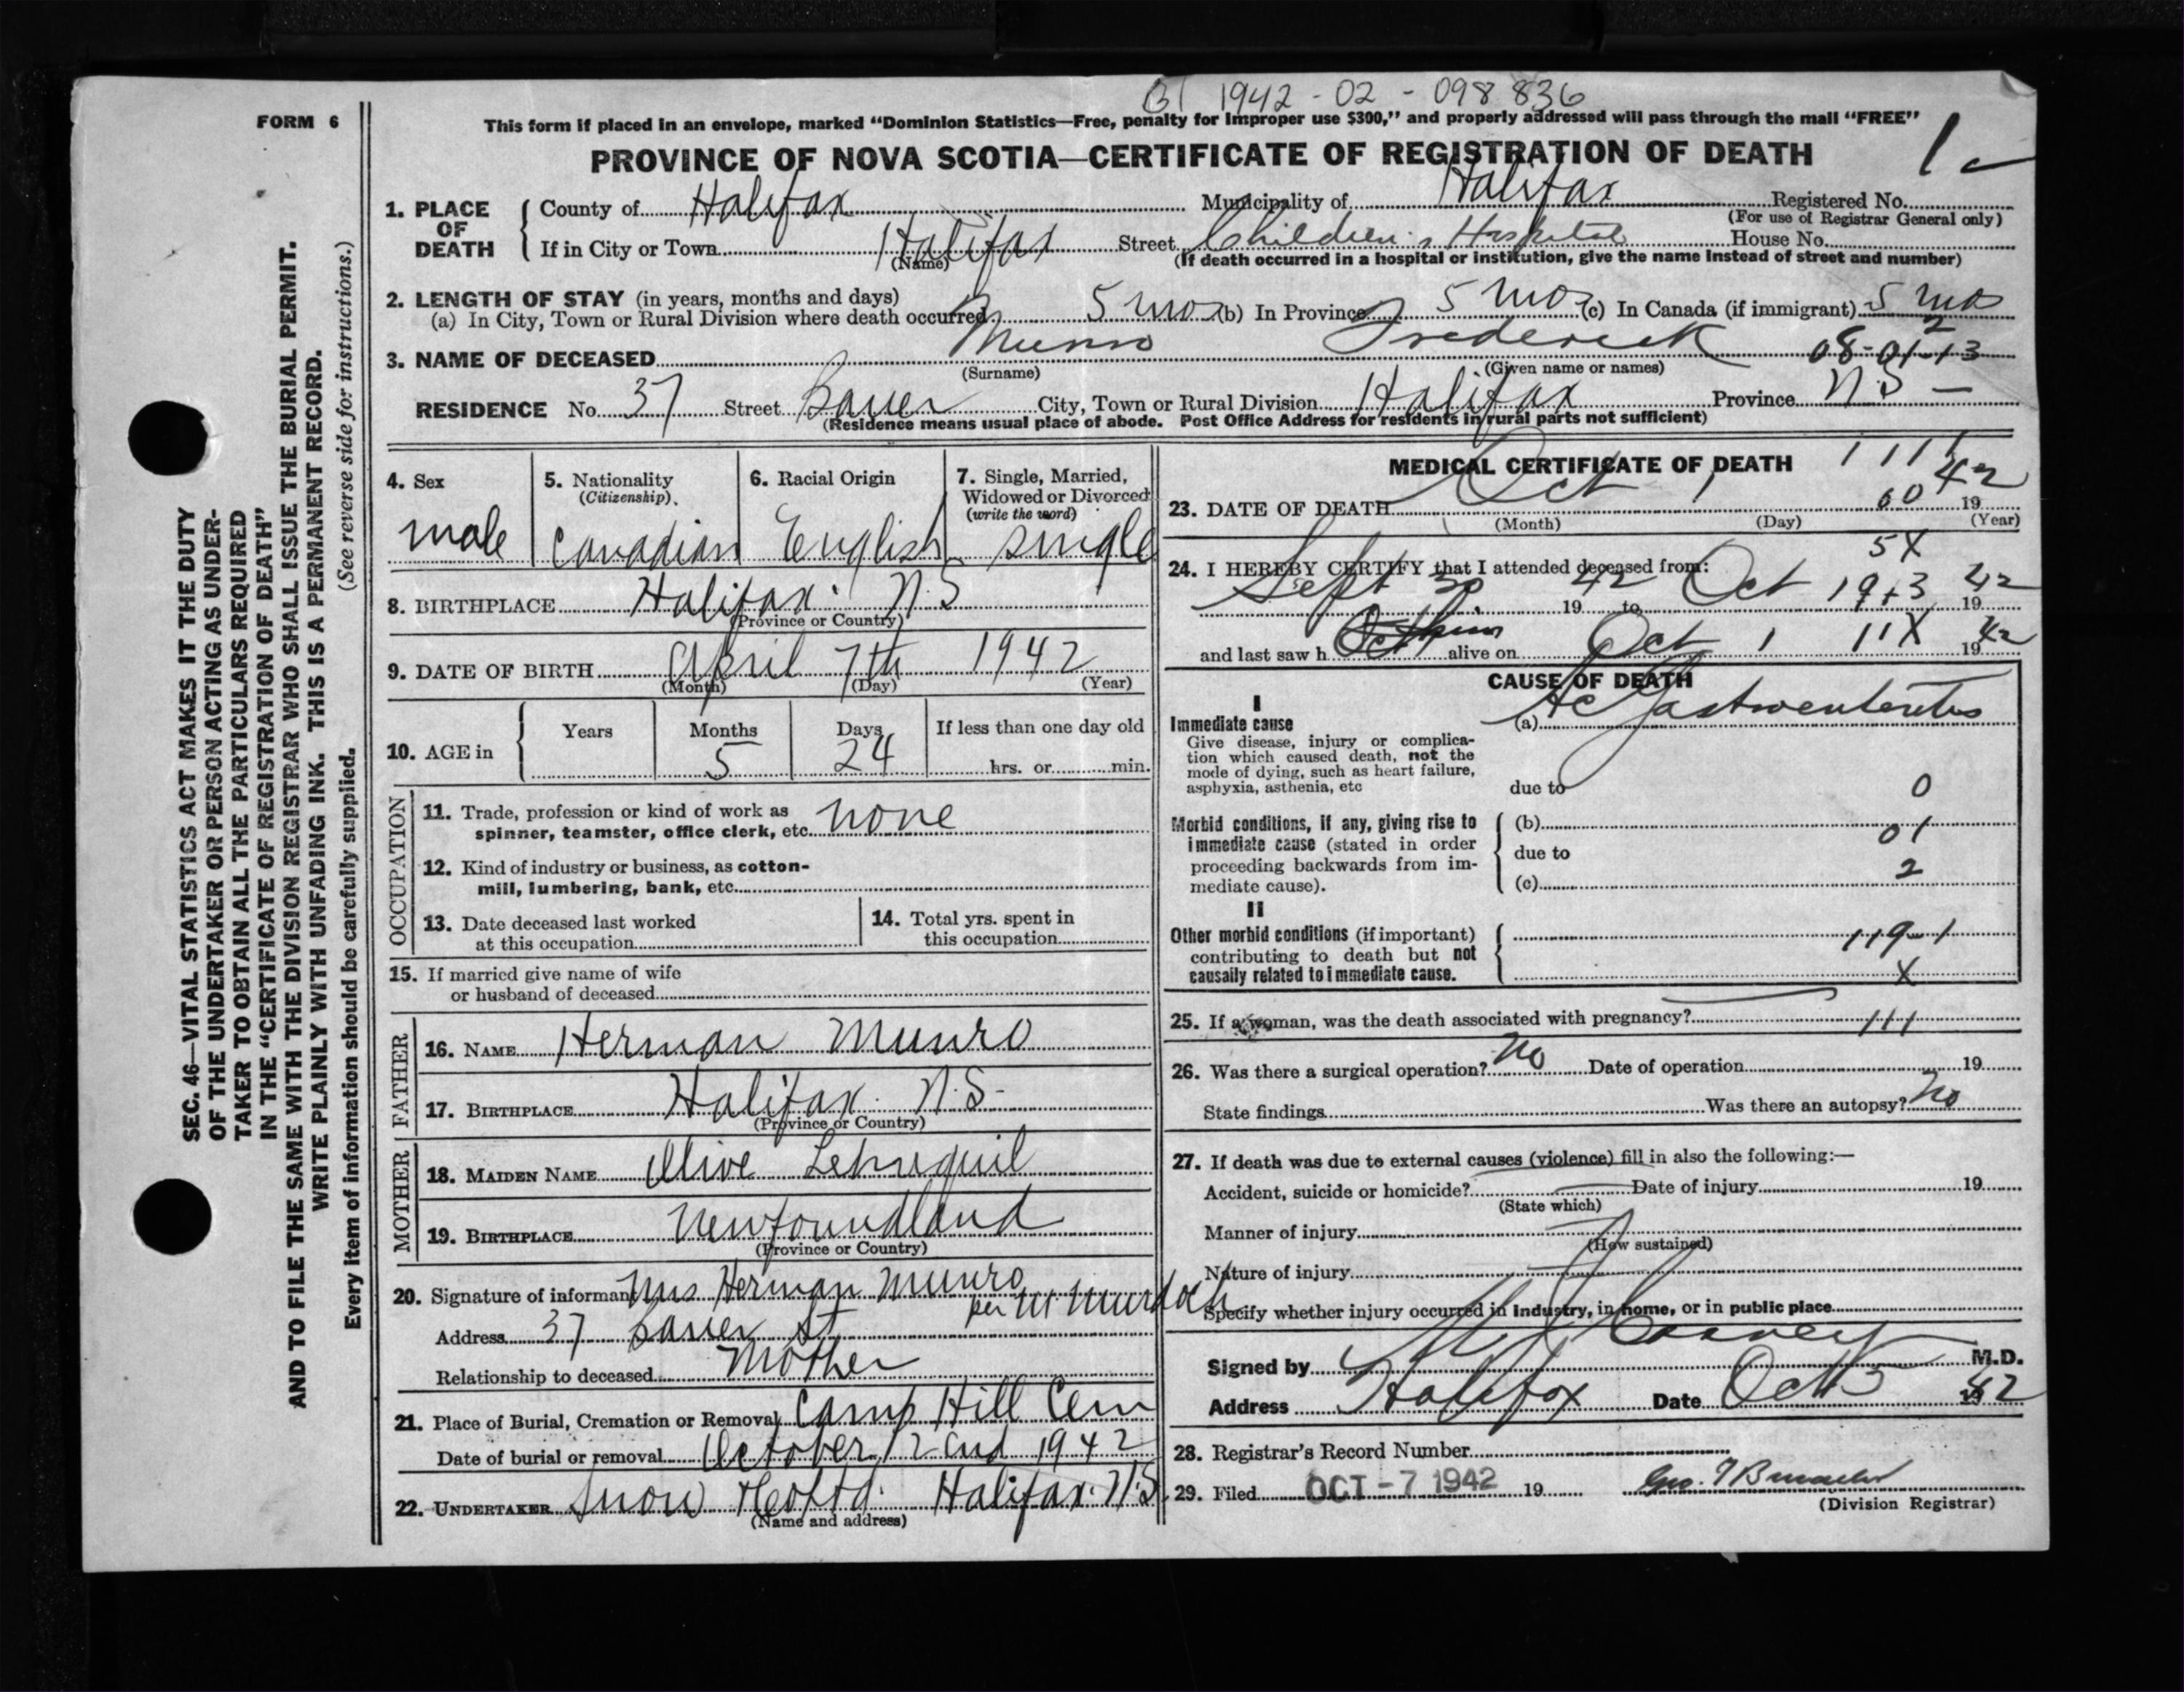 BT 1942-02-098836
FORM 6
This form if placed in an envelope, marked “Dominion Statistics—Free, penalty for improper use $300,” and properly addressed will pass through the mail “FREE”
PROVINCE OF NOVA SCOTIA—CERTIFICATE OF REGISTRATION OF DEATH
1
1. PLACE OF DEATH
County of Halifax Municipality of Halifax Registered No.
(For use of Registrar General only)
If in City or Town Halifax Street Children's Hospital House No.
(Name) (If death occurred in a hospital or institution, give the name instead of street and number)
2. LENGTH OF STAY (in years, months and days)
(a) In City, Town or Rural Division where death occurred 5 mos (b) In Province 5 mos (c) In Canada (if immigrant) 5 mos
2
3. NAME OF DECEASED Munro Frederick 08-01-13
(Surname) (Given name or names)
RESIDENCE No. 37 Street Bauer City, Town or Rural Division Halifax Province N.S —
(Residence means usual place of abode. Post Office Address for residents in rural parts not sufficient)
4. Sex male
5. Nationality (Citizenship) Canadian
6. Racial Origin English
7. Single, Married, Widowed or Divorced (write the word) single
8. BIRTHPLACE Halifax. N.S
(Province or Country)
9. DATE OF BIRTH April 7th 1942
(Month) (Day) (Year)
10. AGE in Years Months 5 Days 24 If less than one day old
hrs. or min.
OCCUPATION
11. Trade, profession or kind of work as
spinner, teamster, office clerk, etc. none
12. Kind of industry or business, as cotton-
mill, lumbering, bank, etc.
13. Date deceased last worked
at this occupation
14. Total yrs. spent in
this occupation
15. If married give name of wife
or husband of deceased
FATHER
16. NAME Herman Munro
17. BIRTHPLACE Halifax. N.S-
(Province or Country)
MOTHER
18. MAIDEN NAME Olive
19. BIRTHPLACE Newfoundland
(Province or Country)
20. Signature of informant Mrs Herman Munro
per M. Murdoch
Address 37 Bauer St
Relationship to deceased Mother
21. Place of Burial, Cremation or Removal Camp Hill Cem
Date of burial or removal October 2nd 1942
22. UNDERTAKER Snow & Co Ltd. Halifax. N.S.
(Name and address)
MEDICAL CERTIFICATE OF DEATH 1111
23. DATE OF DEATH Oct 1 60 1942
(Month) (Day) (Year)
5X
24. I HEREBY CERTIFY that I attended deceased from:
Sept 30 1942 to Oct 1 9+3 1942
and last saw h im alive on Oct 1 11X 1942
CAUSE OF DEATH
I
Immediate cause
Give disease, injury or complica-
tion which caused death, not the
mode of dying, such as heart failure,
asphyxia, asthenia, etc
(a) Ac Gastroenteritis
due to 0
Morbid conditions, if any, giving rise to
immediate cause (stated in order
proceeding backwards from im-
mediate cause).
(b)
01
due to
2
(c)
II
Other morbid conditions (if important)
contributing to death but not
causally related to immediate cause.
119-1
X
25. If a woman, was the death associated with pregnancy? 111
26. Was there a surgical operation? No Date of operation 19
State findings Was there an autopsy? No
27. If death was due to external causes (violence) fill in also the following:—
Accident, suicide or homicide? Date of injury 19
(State which)
Manner of injury
(How sustained)
Nature of injury
Specify whether injury occurred in industry, in home, or in public place
Signed by M.D.
Address Halifax Date Oct 5 1942
28. Registrar's Record Number
29. Filed OCT -7 1942 19
(Division Registrar)
SEC. 46—VITAL STATISTICS ACT MAKES IT THE DUTY
OF THE UNDERTAKER OR PERSON ACTING AS UNDER-
TAKER TO OBTAIN ALL THE PARTICULARS REQUIRED
IN THE “CERTIFICATE OF REGISTRATION OF DEATH”
AND TO FILE THE SAME WITH THE DIVISION REGISTRAR WHO SHALL ISSUE THE BURIAL PERMIT.
WRITE PLAINLY WITH UNFADING INK. THIS IS A PERMANENT RECORD.
Every item of information should be carefully supplied. (See reverse side for instructions.)